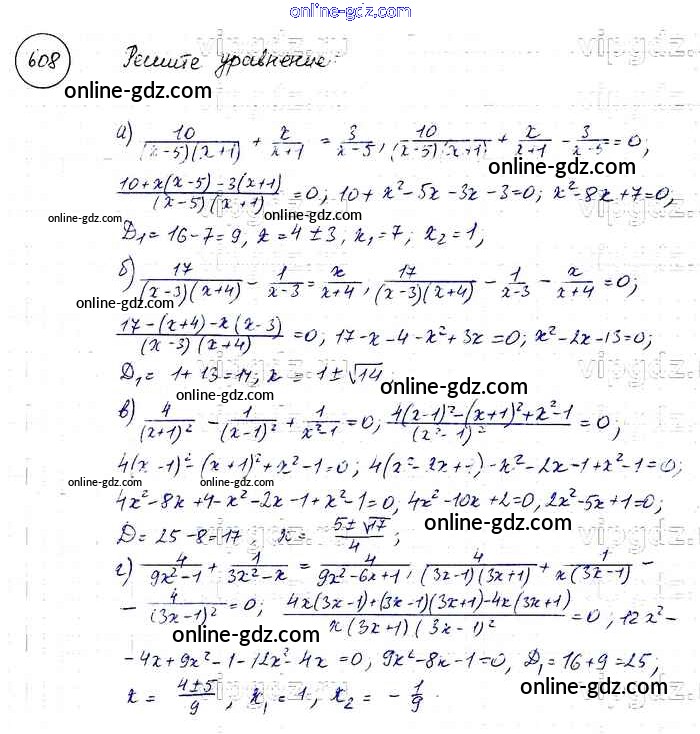 online-gdz.com
608 Решите уравнение:
online-gdz.com
а) 10/((x-5)(x+1)) + x/(x+1) = 3/(x-5), 10/((x-5)(x+1)) + x/(x+1) - 3/(x-5) = 0;
online-gdz.com
(10+x(x-5)-3(x+1))/((x-5)(x+1)) = 0; 10+x²-5x-3x-3=0; x²-8x+7=0,
online-gdz.com online-gdz.com
D₁= 16-7=9, x=4±3, x₁=7; x₂=1;
online-gdz.com
б) 17/((x-3)(x+4)) - 1/(x-3) = x/(x+4), 17/((x-3)(x+4)) - 1/(x-3) - x/(x+4) = 0;
online-gdz.com
(17-(x+4)-x(x-3))/((x-3)(x+4)) = 0, 17-x-4-x²+3x=0; x²-2x-13=0;
D₁= 1+13=14; x = 1±√14
online-gdz.com
в) 4/(x+1)² - 1/(x-1)² + 1/(x²-1) = 0, (4(x-1)²-(x+1)²+x²-1)/(x²-1)² = 0;
online-gdz.com
4(x-1)²-(x+1)²+x²-1=0; 4(x²-2x+1)-x²-2x-1+x²-1=0;
online-gdz.com online-gdz.com
4x²-8x+4-x²-2x-1+x²-1=0, 4x²-10x+2=0, 2x²-5x+1=0;
online-gdz.com
D= 25-8=17, x = (5±√17)/4;
г) 4/(9x²-1) + 1/(3x²-x) = 4/(9x²-6x+1), 4/((3x-1)(3x+1)) + 1/(x(3x-1)) -
online-gdz.com
- 4/(3x-1)² = 0; (4x(3x-1)+(3x-1)(3x+1)-4x(3x+1))/(x(3x+1)(3x-1)²) = 0; 12x²-
online-gdz.com
-4x+9x²-1-12x²-4x=0, 9x²-8x-1=0, D₁=16+9=25;
online-gdz.com
x = (4±5)/9, x₁=1, x₂ = -1/9.
online-gdz.com